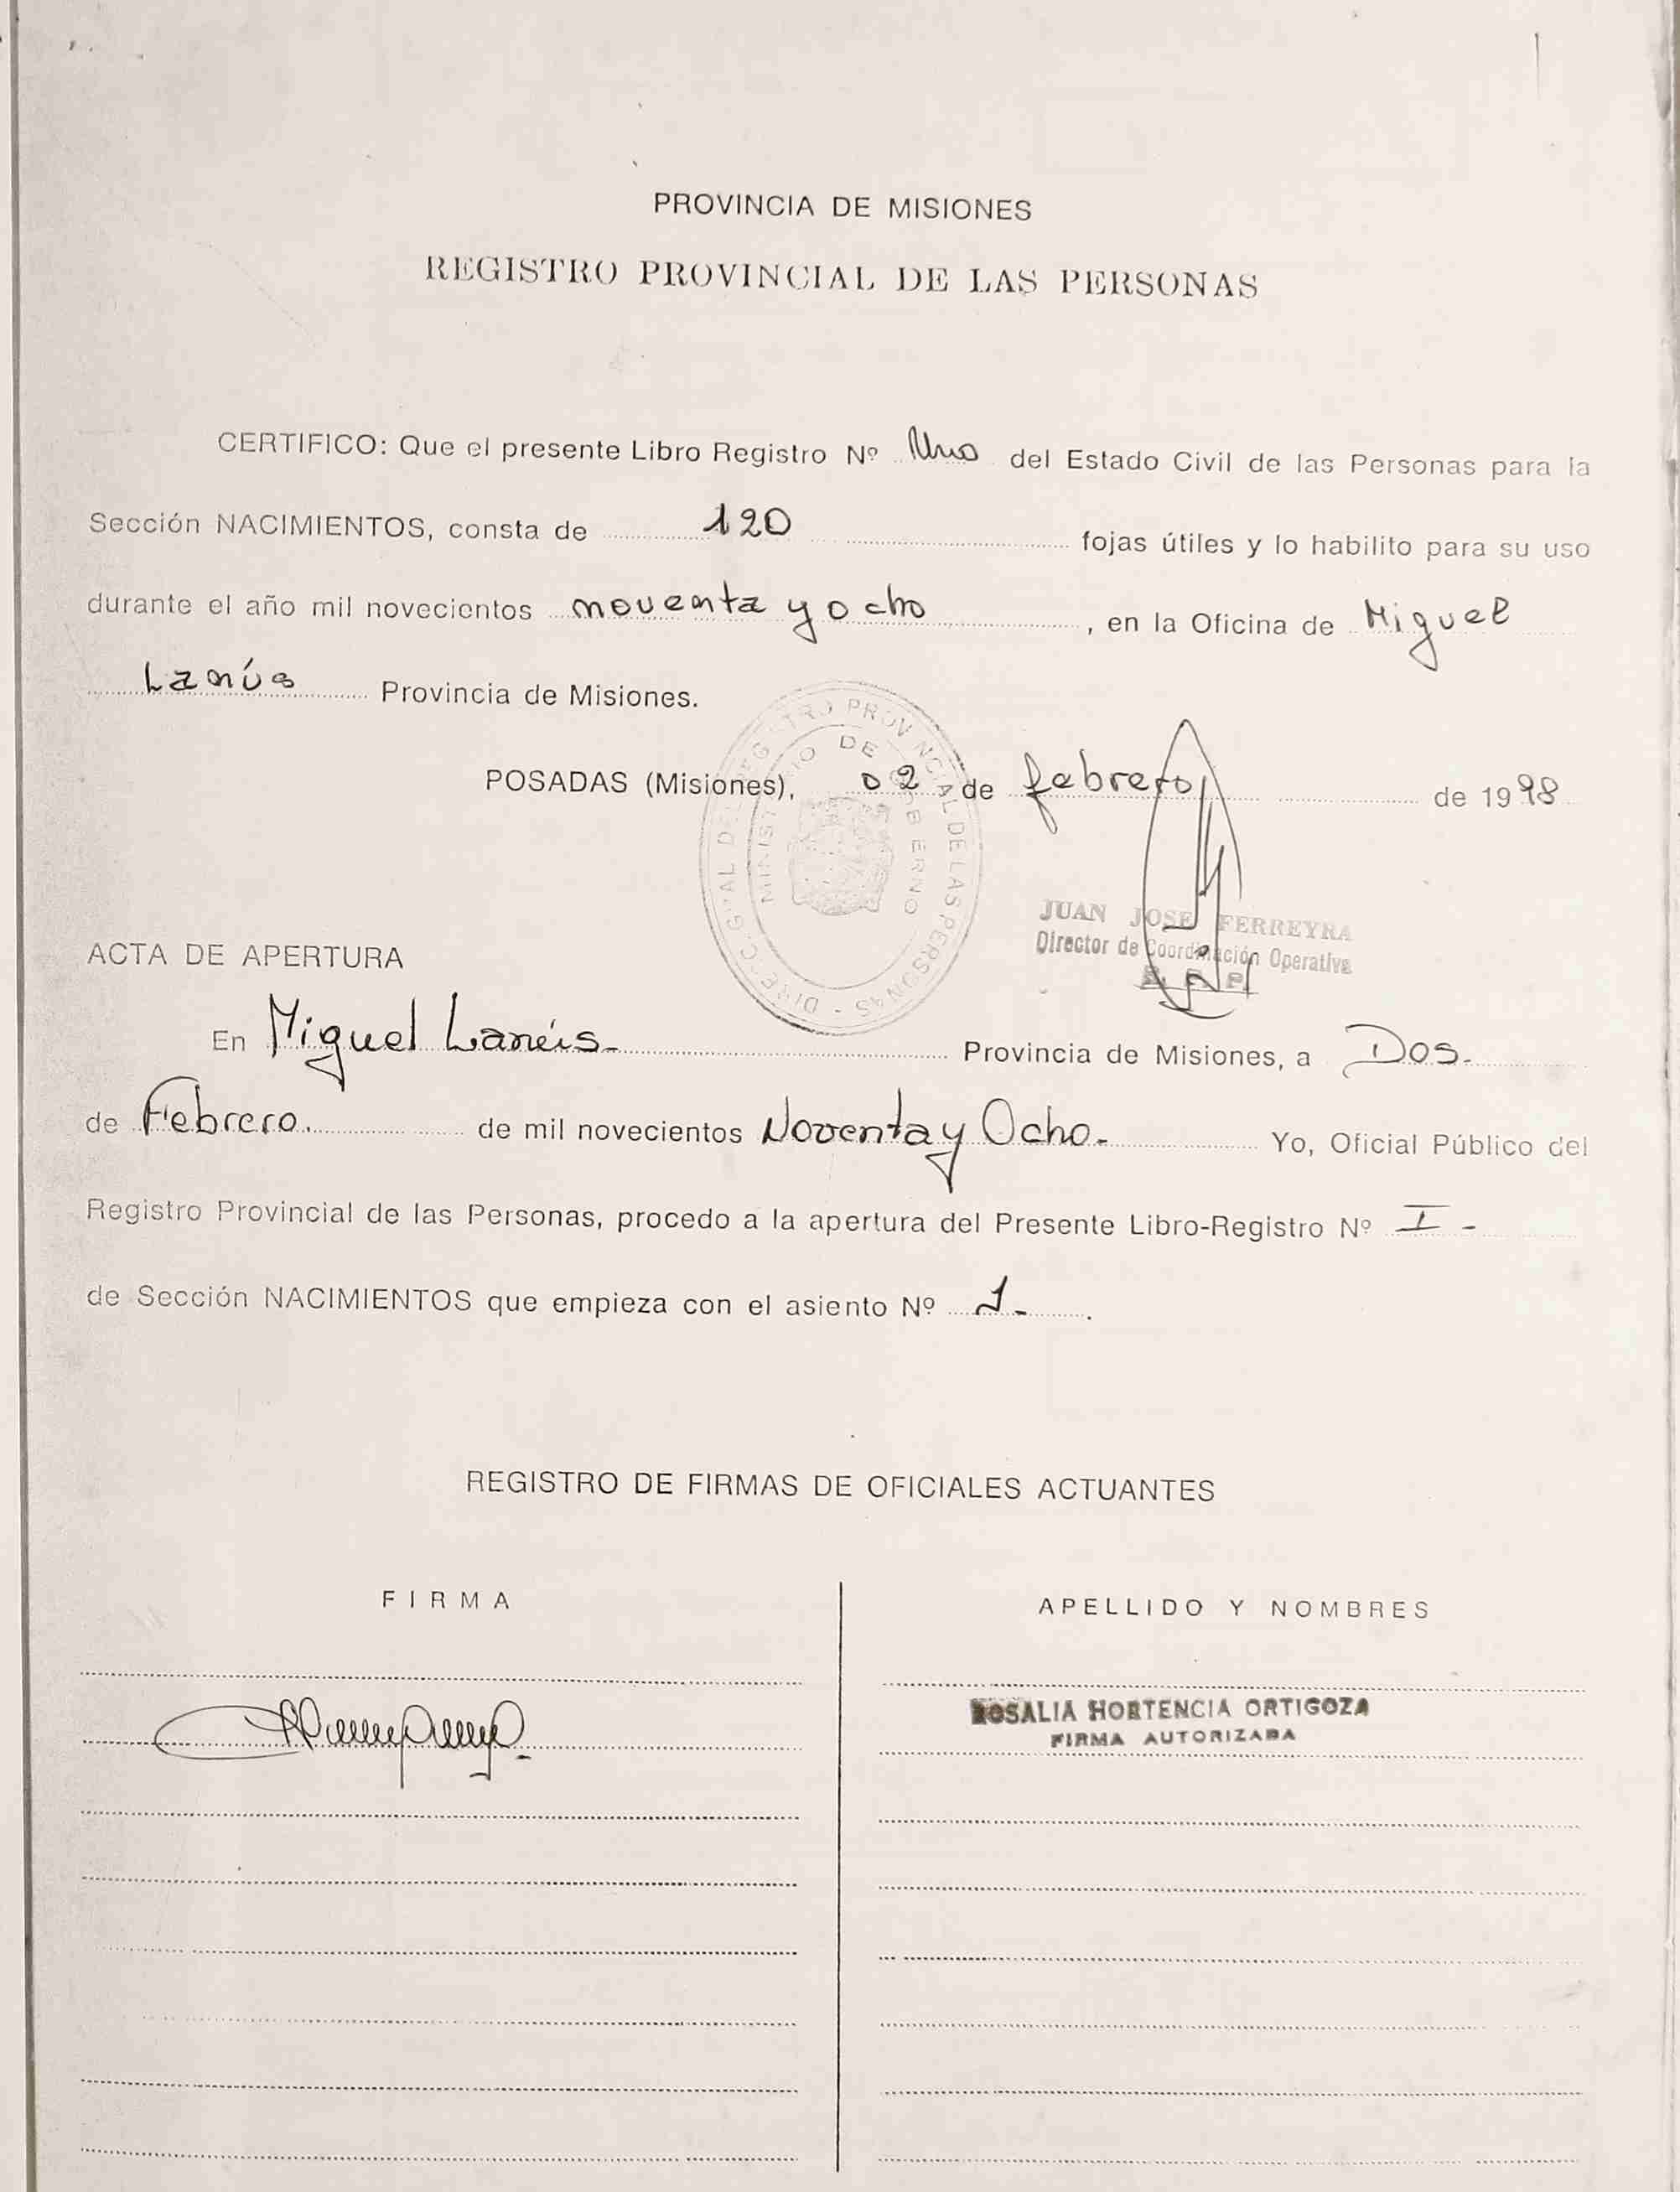 PROVINCIA DE MISIONES
REGISTRO PROVINCIAL DE LAS PERSONAS
CERTIFICO: Que el presente Libro Registro Nº Uno del Estado Civil de las Personas para la
Sección NACIMIENTOS, consta de 120 fojas útiles y lo habilito para su uso
durante el año mil novecientos noventa y ocho, en la Oficina de Miguel
Lanús Provincia de Misiones.
POSADAS (Misiones), 02 de febrero de 1998
DIREC. GRAL DEL REGISTRO PROVINCIAL DE LAS PERSONAS -
MINISTERIO DE GOBIERNO
JUAN JOSE FERREYRA
Director de Coordinación Operativa
R. P. P.
ACTA DE APERTURA
En Miguel Lanús- Provincia de Misiones, a Dos-
de Febrero. de mil novecientos Noventa y Ocho- Yo, Oficial Público del
Registro Provincial de las Personas, procedo a la apertura del Presente Libro-Registro Nº I -
de Sección NACIMIENTOS que empieza con el asiento Nº 1-.
REGISTRO DE FIRMAS DE OFICIALES ACTUANTES
FIRMA
APELLIDO Y NOMBRES
ROSALIA HORTENCIA ORTIGOZA
FIRMA AUTORIZADA